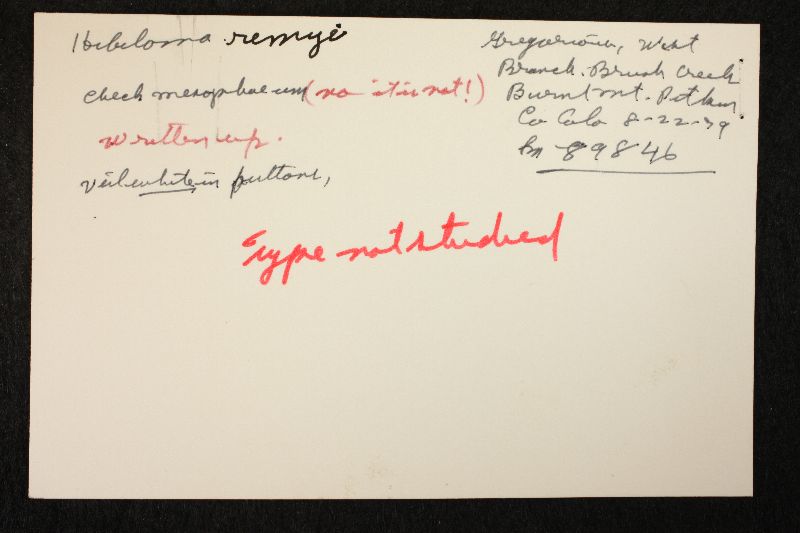 Hebeloma remyi
check mesophaeum (no it is not!)
written up.
veil white, in buttons,
Gregarious, West
Branch. Brush Creek
Burnt Mt. Pitkin
Co Colo 8-22-79
89846
Type not studied